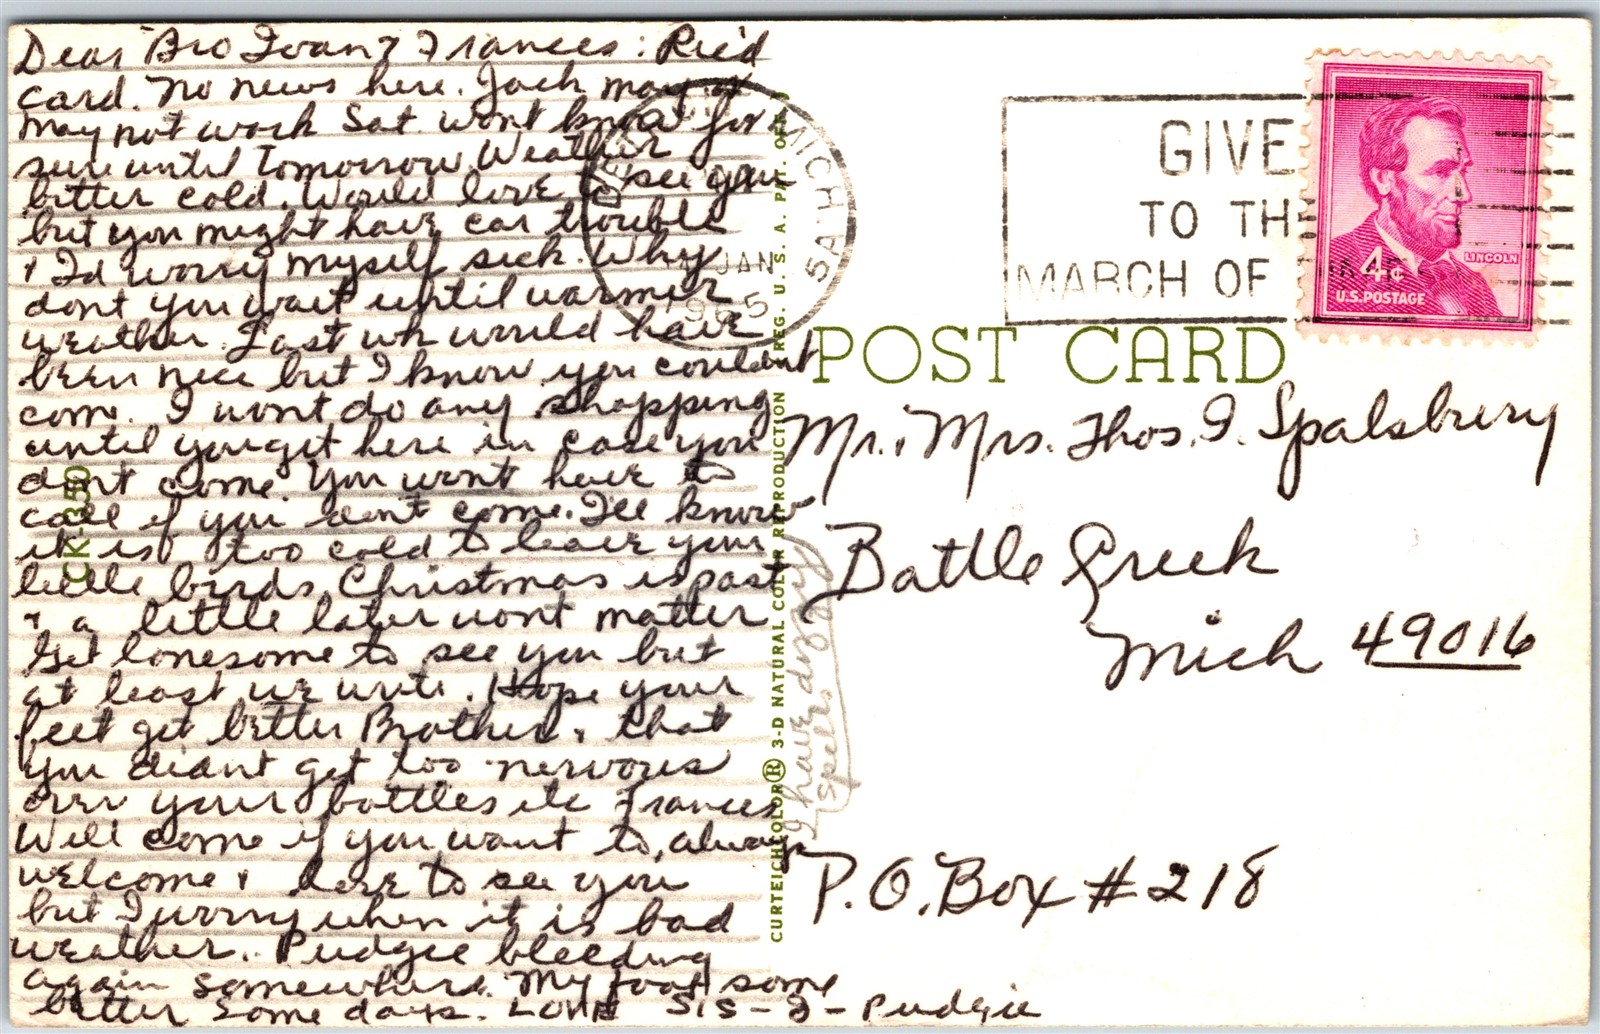 Dear Bro Ivan & Frances: Rec'd
card. No news here. Jack may or
may not work Sat. wont know for
sure until tomorrow. Weather
bitter cold. Would love to see you
but you might have car trouble
& I'd worry myself sick. Why
dont you wait until warmer
weather. Last wk would have
been nice but I know you couldnt
come. I wont do any shopping
until you get here in case you
dont come. You wont have to
call if you dont come. I'll know
it is too cold to leave your
little birds. Christmas is past
& a little later wont matter
Get lonesome to see you but
at least we write. Hope your
feet get better Brother, & that
you didnt get too nervous
over your bottles etc Frances
Will come if you want to, always
welcome & love to see you
but I worry when it is bad
weather. Pudgie bleeding
again somewhere. My foot some
better some days. Love Sis - J - Pudgie
I have dizzy
spells
CURTEICHCOLOR® 3-D NATURAL COLOR REPRODUCTION (REG. U.S.A. PAT. OFF.)
MICH
JAN
GIVE
TO TH
MARCH OF
4¢
LINCOLN
U.S. POSTAGE
POST CARD
Mr. & Mrs. Thos. I. Spalsbury
Battle Creek
Mich 49016
P.O. Box #218